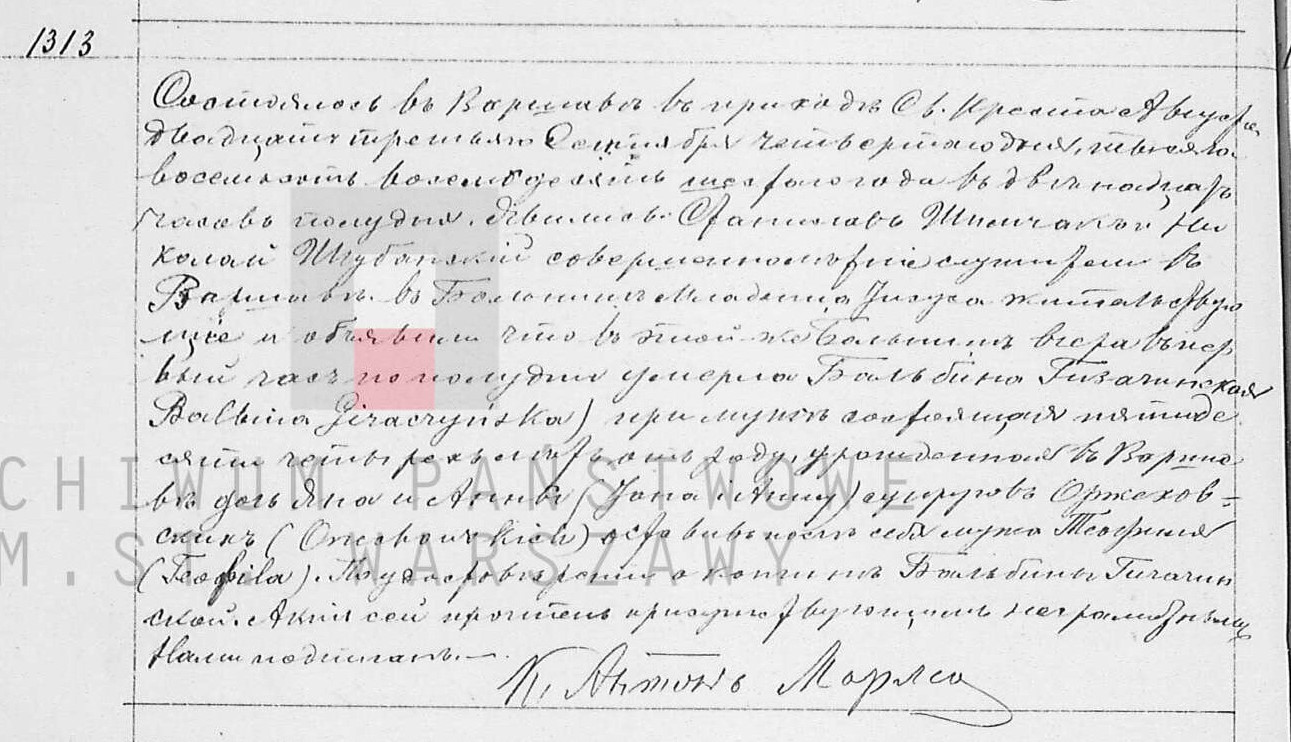 1313
Состоялось въ Варшавѣ въ приходѣ Св. Креста Августа
двадцать третьяго Сентября четвертаго дня, тысяча
восемьсотъ восемьдесятъ шестаго года въ двенадцать
часовъ полудня. Явились Станиславъ и Ни
колай совершеннолѣтніе служители въ
Варшавѣ въ Больницѣ Младенца Іисуса жительствую
щіе и объявили что въ этой же Больницѣ вчера въ пер
вый часъ по полудни умерла Бальбина Гизачинская
Balbina Gizaczyńska) при мужѣ состоящая пятиде
сяти четырехъ лѣтъ отъ роду, урожденная въ Варша
вѣ дочь Яна и Анны (Jana i Anny) супруговъ Оржехов-
скихъ (Orzechowskich) оставивъ послѣ себя мужа Теофиля
(Teofila). По удостовѣреніи о кончинѣ Бальбины Гизачин
ской. Актъ сей прочтенъ присутствующимъ неграмотнымъ
Нами подписанъ.—
К. Антонъ
ARCHIWUM PAŃSTWOWE
M.ST. WARSZAWY